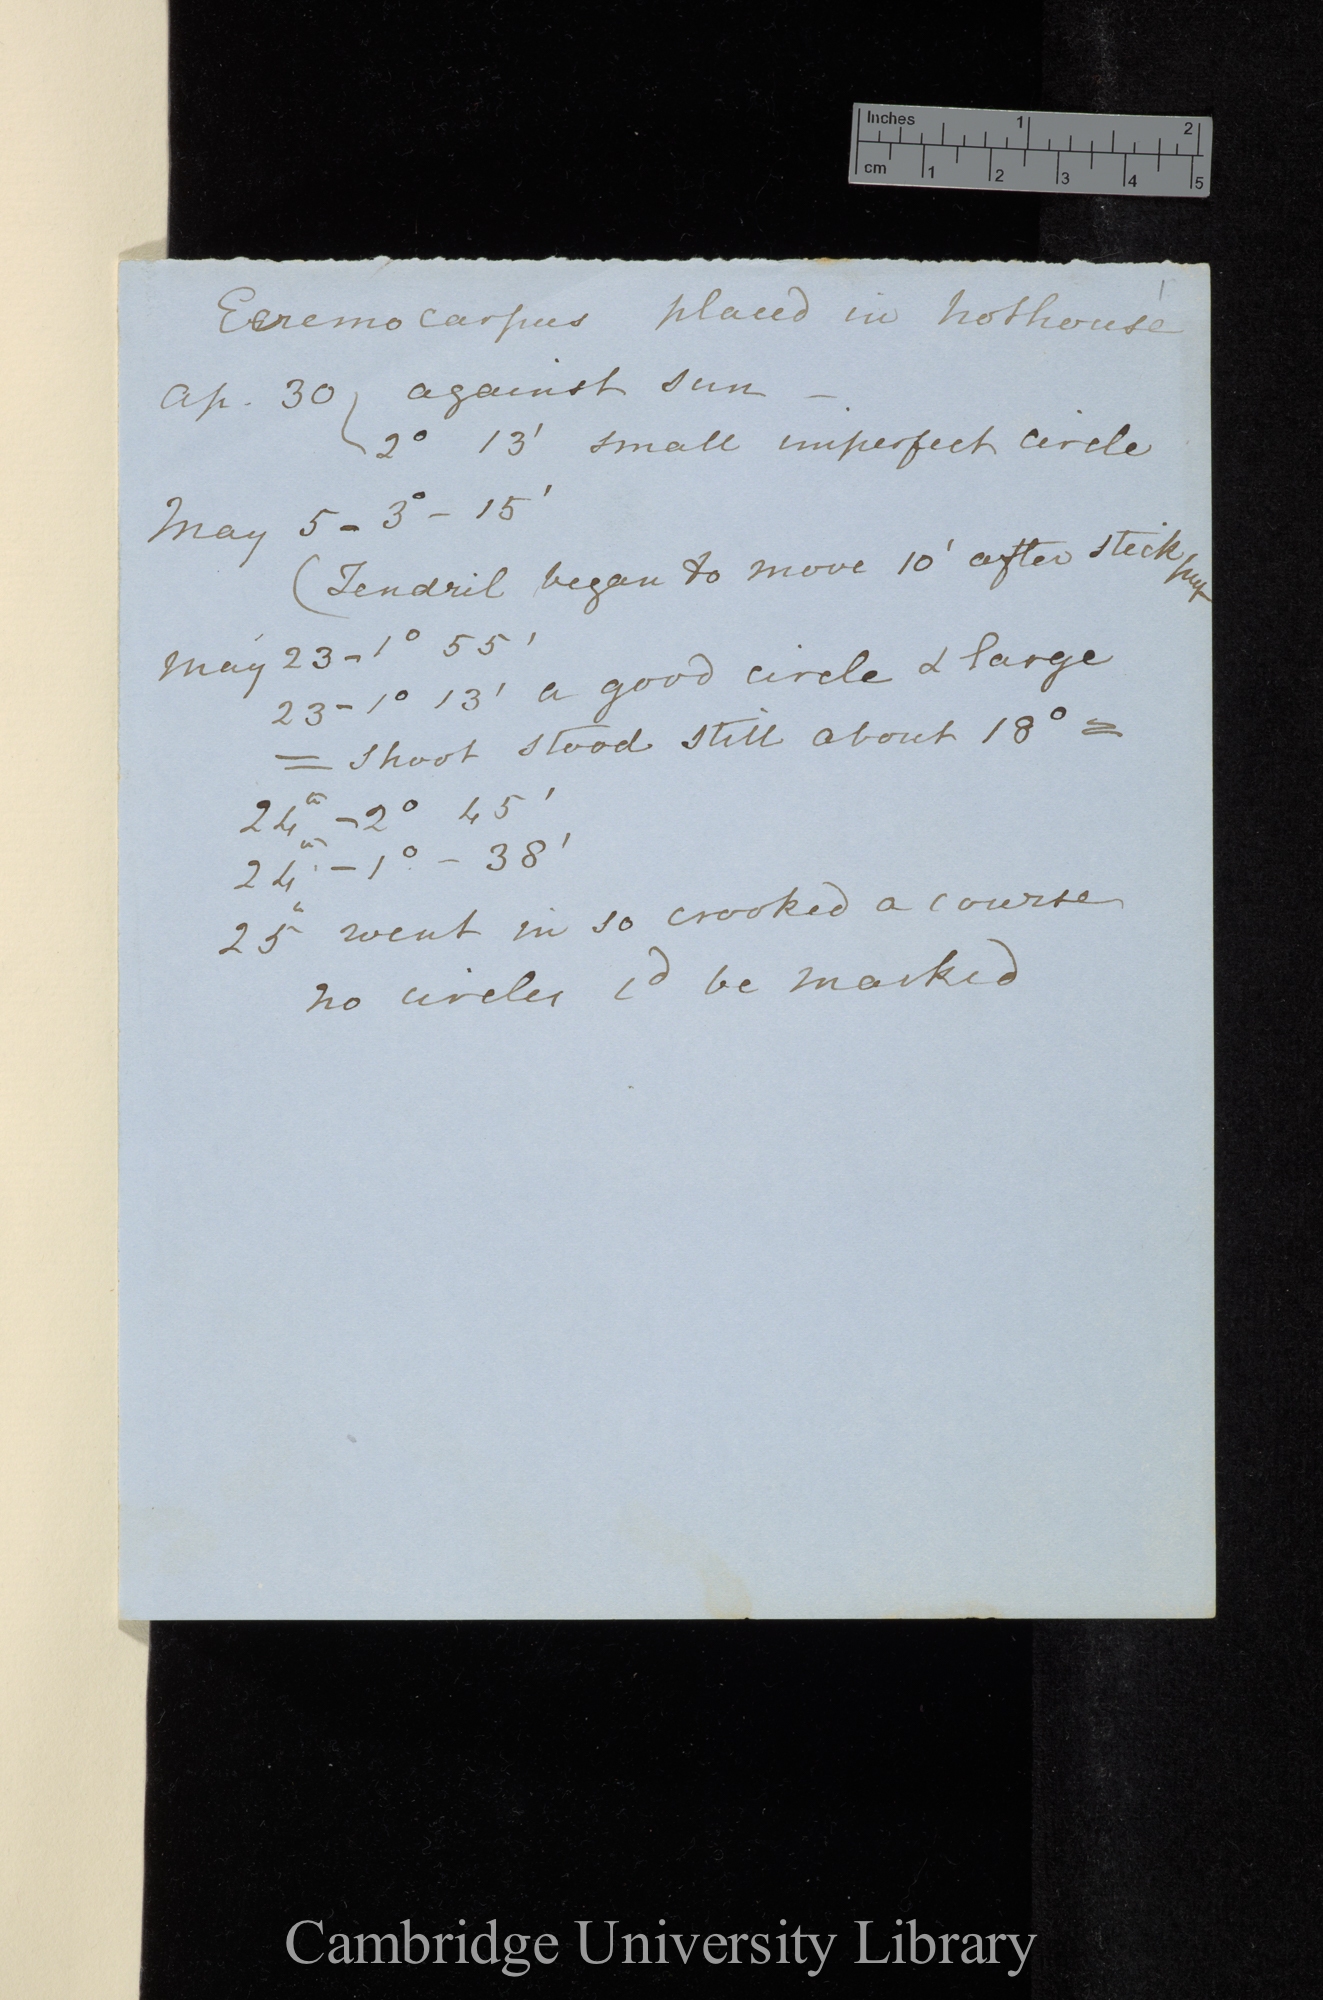 Inches 1 2
cm 1 2 3 4 5
1
Eccremocarpus placed in hothouse
Ap. 30 against sun —
2° 13' small imperfect circle
May 5 - 3° - 15'
(Tendril began to move 10' after stick put
May 23 - 1° 55'
23 - 1° 13' a good circle & large
= shoot stood still about 18° =
24th - 2° 45'
24th - 1° - 38'
25th went in so crooked a course
no circles cd be marked
Cambridge University Library